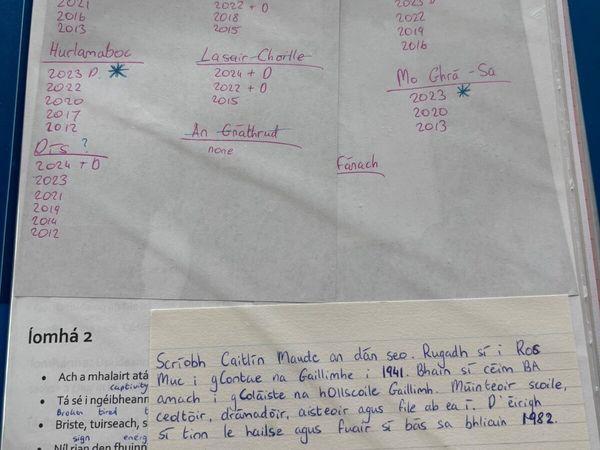 2021
2016
2013
Hurlamaboc
2023 D.
2022
2020
2017
2012
Dís ?
2024 + D
2023
2021
2019
2014
2012
2022 + D
2018
2015
Lasair-Choille
2024 + D
2022 + D
2015
An Gnáthrud
none
2023 D
2022
2019
2016
Mo Ghrá-Sa
2023
2020
2013
Fánach
Íomhá 2
Ach a mhalairt atá
captivity
Tá sé i ngéibheann
Broken tired
Briste, tuirseach, s
sign energ
Níl rian den fhuinn
Scríobh Caitlín Maude an dán seo. Rugadh sí i Ros
Muc i gContae na Gaillimhe i 1941. Bhain sí céim BA
amach i gColáiste na hOllscoile Gaillimh. Múinteoir scoile,
ceoltóir, drámadóir, aisteoir agus file ab ea í. D'éirigh
sí tinn le hailse agus fuair sí bás sa bhliain 1982.